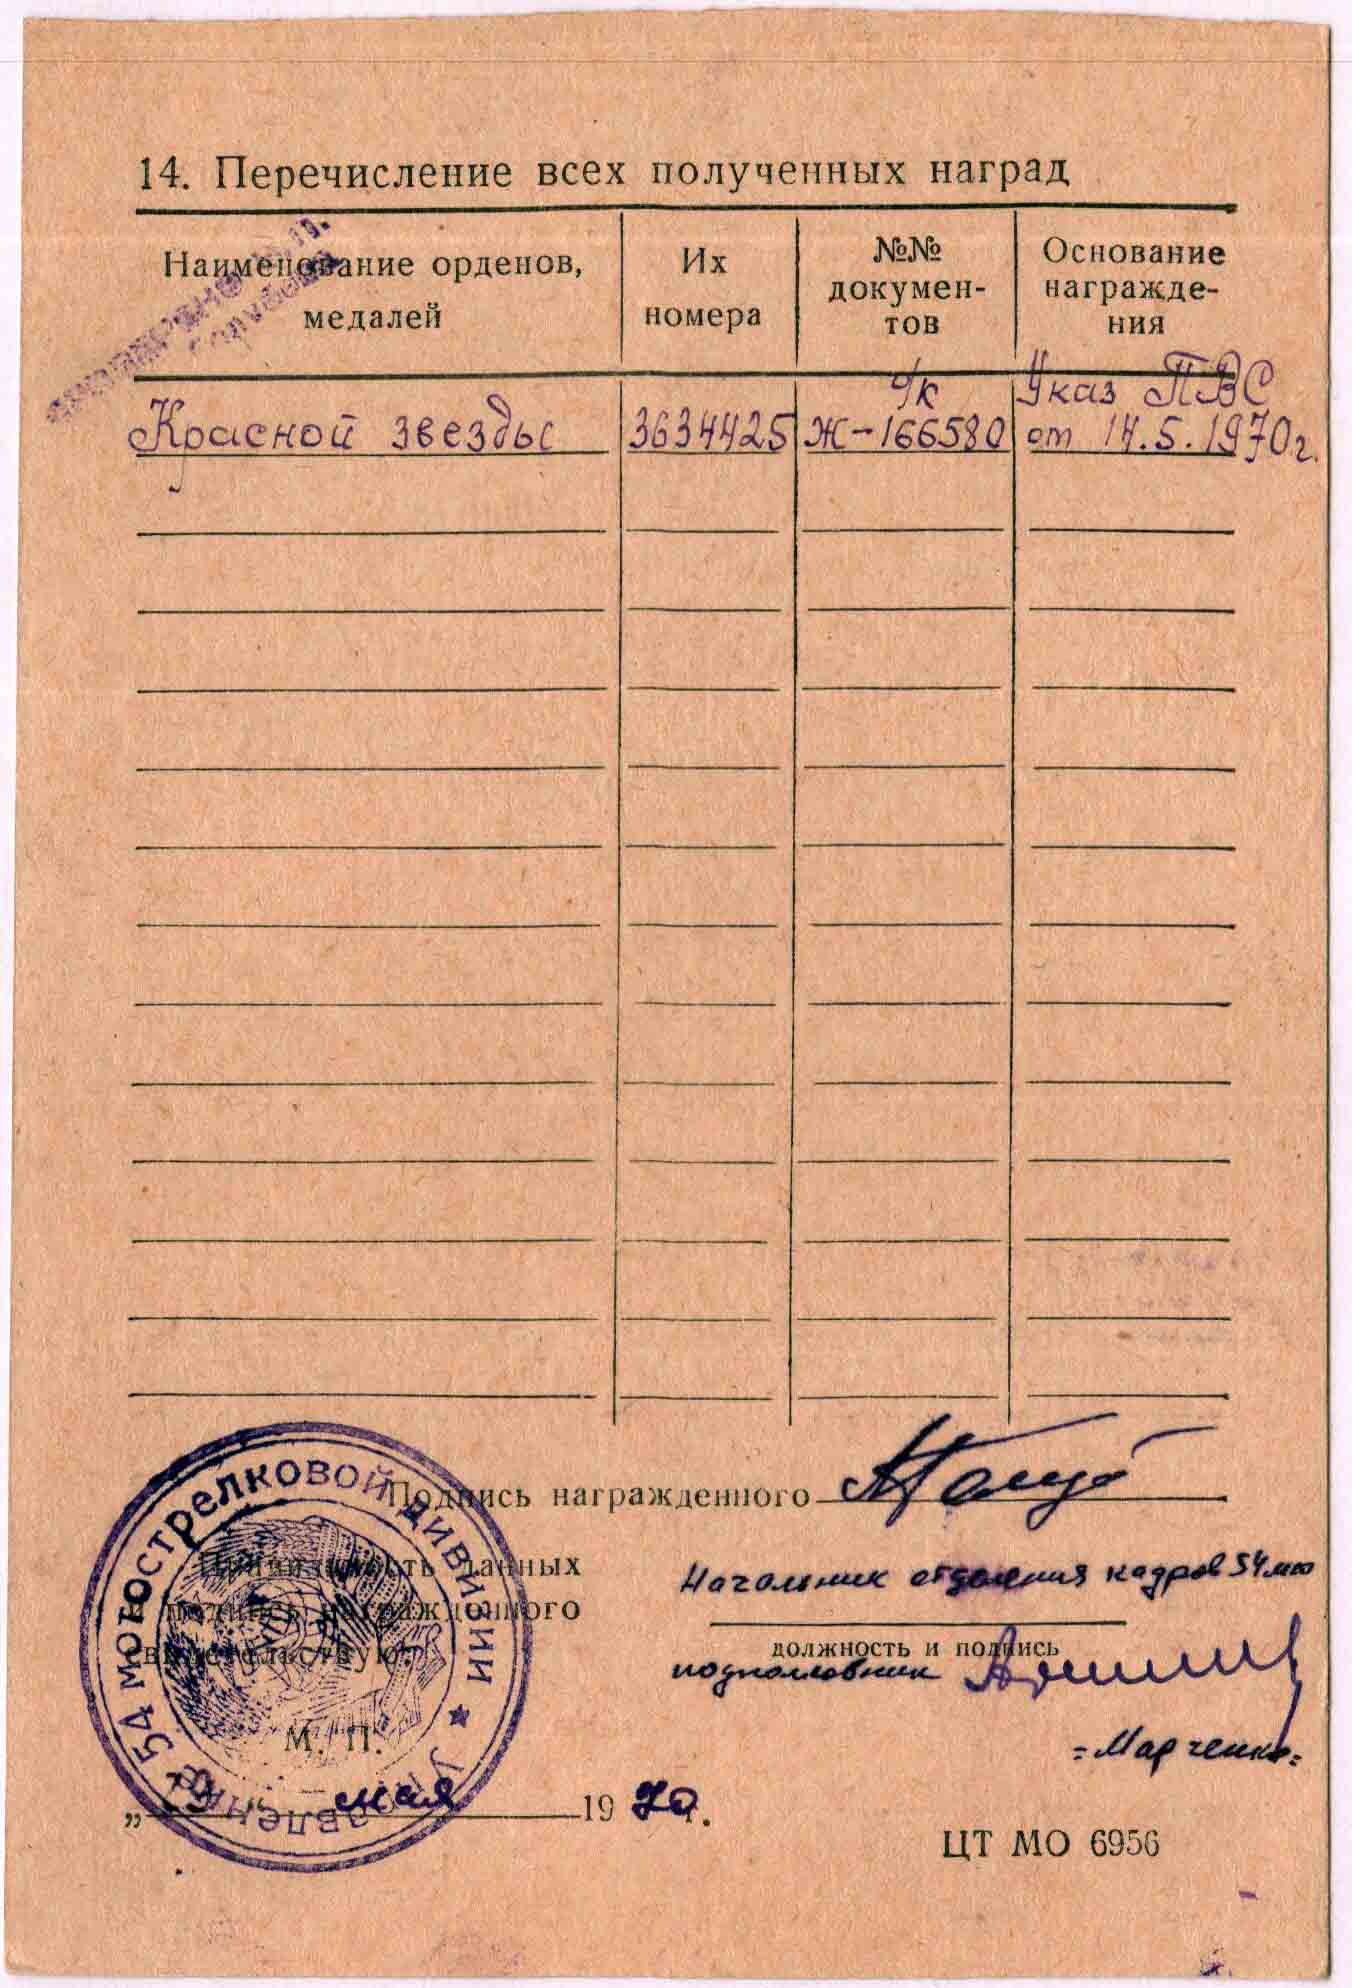 14. Перечисление всех полученных наград
Наименование орденов, медалей
Их номера
№№ документов
Основание награждения
Красной звезды
3634425
о/к
Ж-166580
Указ ПВС
от 14.5.1970г.
Подпись награжденного
Правильность данных
и подпись награжденного
свидетельствую:
Начальник отделения кадров 54 мсд
должность и подпись
подполковник
=Марченко=
М. П.
„ " мая 1970 г.
Управление 54 мотострелковой дивизии
ЦТ МО 6956